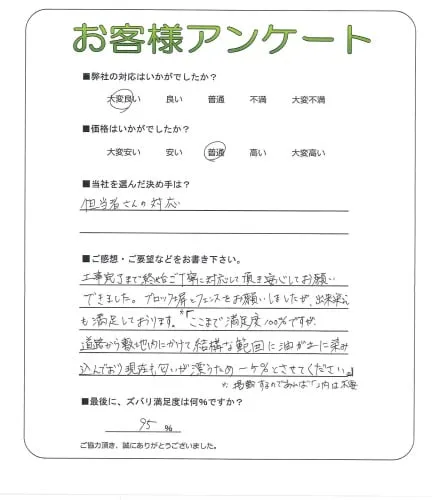 お客様アンケート
■弊社の対応はいかがでしたか？
大変良い 良い 普通 不満 大変不満
■価格はいかがでしたか？
大変安い 安い 普通 高い 大変高い
■当社を選んだ決め手は？
担当者さんの対応
■ご感想・ご要望などをお書き下さい。
工事完了まで終始ご丁寧に対応して頂き安心してお願い
できました。ブロック塀とフェンスをお願いしましたが、出来栄え
も満足しております。*「ここまで満足度100%ですが、
道路から敷地内にかけて結構な範囲に油がおに染み
込んでおり現在も匂いが漂うため-ケ%とさせてください。」
*掲載するのであれば「」内は不要
■最後に、ズバリ満足度は何%ですか？
95 %
ご協力頂き、誠にありがとうございました。